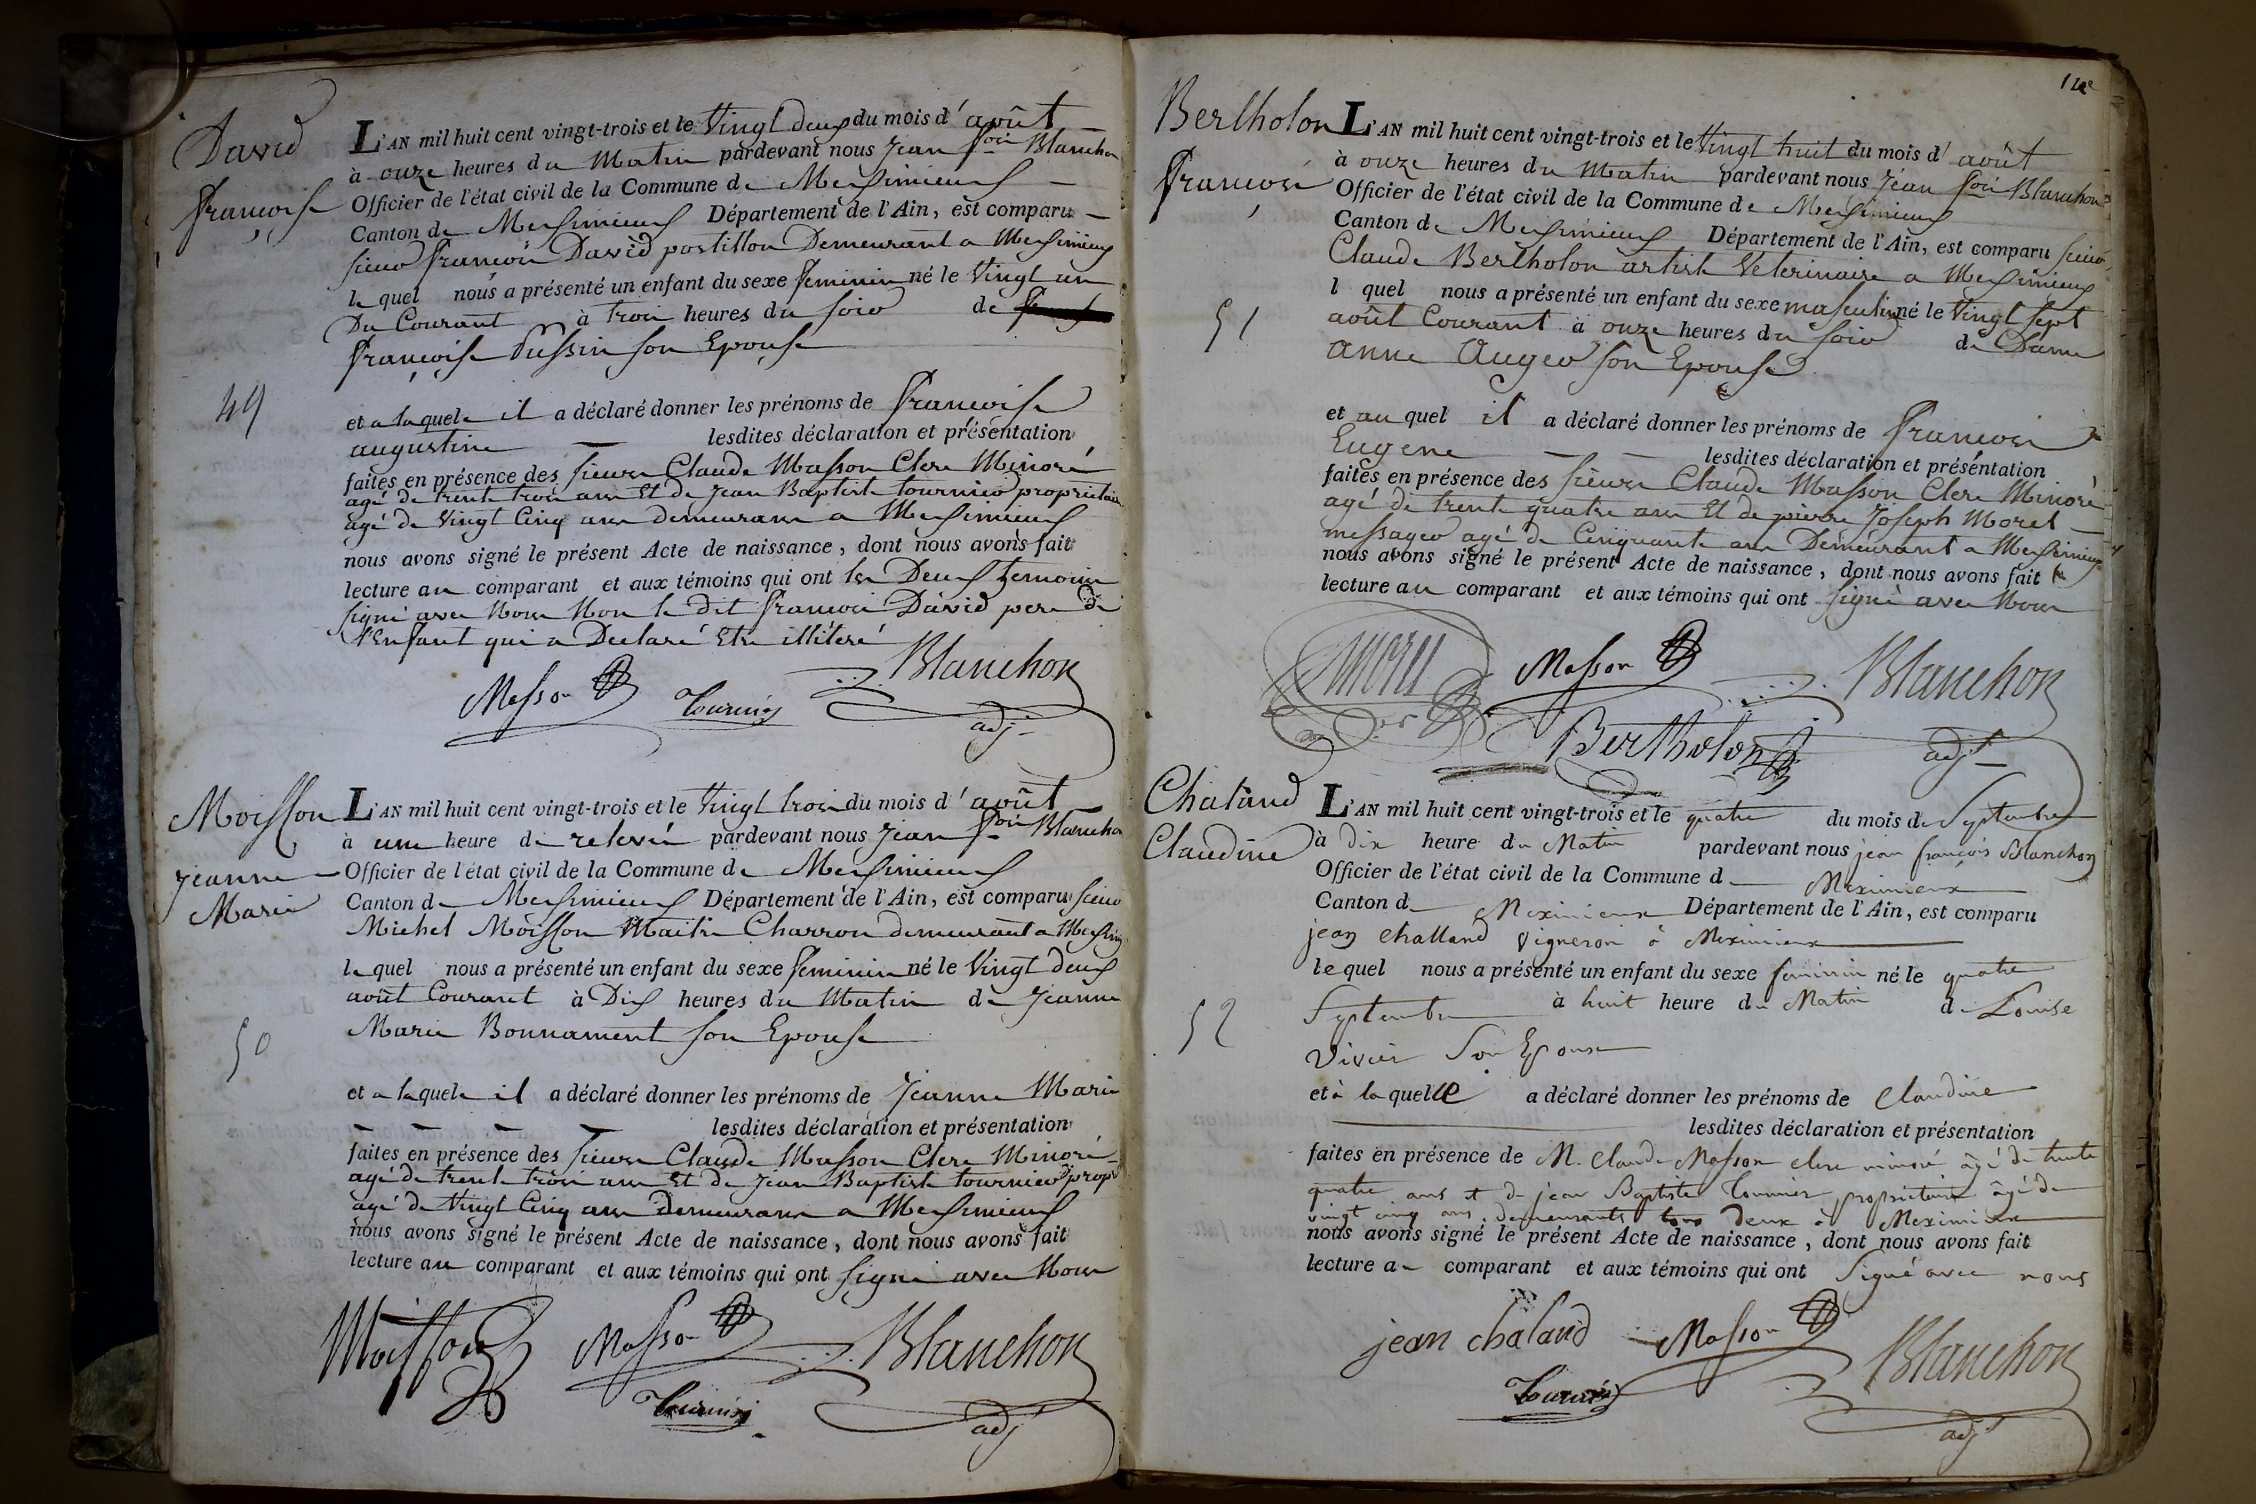 David
françoise
49
L'AN mil huit cent vingt-trois et le Vingt deux du mois d'août
à onze heures du Matin pardevant nous Jean fois Blanchon
Officier de l'état civil de la Commune de Meximieux
Canton de Meximieux Département de l'Ain, est comparu
sieur françois David postillon Demeurant a Meximieux
le quel nous a présenté un enfant du sexe feminin né le Vingt un
Du Courant à trois heures du soir de
françoise Pussin son Epouse
et a laquele il a déclaré donner les prénoms de françoise
augustine lesdites déclaration et présentation
faites en présence des sieurs Claude Masson Clerc Minoré
agé de trente trois ans Et de Jean Baptiste tournier proprietaire
agé de Vingt Cinq ans demeurans a Meximieux
nous avons signé le présent Acte de naissance, dont nous avons fait
lecture au comparant et aux témoins qui ont les Deux temoins
signé avec Nous Non le dit françois David pere de
l'Enfant qui a Declaré Etre illiteré
Masson Tournier Blanchon
adj
Moisson
Jeanne
Marie
50
L'AN mil huit cent vingt-trois et le Vingt trois du mois d'août
à une heure de relevée pardevant nous Jean fois Blanchon
Officier de l'état civil de la Commune de Meximieux
Canton de Meximieux Département de l'Ain, est comparu sieur
Michel Moisson Maitre Charron demeurant a Mexim
le quel nous a présenté un enfant du sexe feminin né le Vingt deux
août Courant à Dix heures du Matin de Jeanne
Marie Bonnament son Epouse
et a laquele il a déclaré donner les prénoms de Jeanne Marie
lesdites déclaration et présentation
faites en présence des sieurs Claude Masson Clerc Minoré
agé de trente trois ans Et de Jean Baptiste tournier propre
agé de Vingt Cinq ans demeurans a Meximieux
nous avons signé le présent Acte de naissance, dont nous avons fait
lecture au comparant et aux témoins qui ont signé avec Nous
Moisson Masson Blanchon
Tournier adj
Bertholon
françois
51
L'AN mil huit cent vingt-trois et le Vingt huit du mois d'août
à onze heures du Matin pardevant nous Jean fois Blanchon
Officier de l'état civil de la Commune de Meximieux
Canton de Meximieux Département de l'Ain, est comparu sieur
Claude Bertholon artiste Veterinaire a Meximieux
l quel nous a présenté un enfant du sexe masculin né le Vingt sept
août Courant à onze heures du soir de Dame
anne Auger son Epouse
et au quel il a déclaré donner les prénoms de françois
Eugene lesdites déclaration et présentation
faites en présence des sieurs Claude Masson Clerc Minoré
agé de trente quatre ans Et de pierre Joseph Morel
messager agé de Cinquante ans Demeurant a Meximieux
nous avons signé le présent Acte de naissance, dont nous avons fait
lecture au comparant et aux témoins qui ont signé avec Nous
Morel Masson Blanchon
Bertholon adj
Chaland
Claudine
52
L'AN mil huit cent vingt-trois et le quatre du mois de Septembre
à dix heure du Matin pardevant nous jean françois Blanchon
Officier de l'état civil de la Commune d Meximieux
Canton d Meximieux Département de l'Ain, est comparu
jean challand vigneron à Meximieux
le quel nous a présenté un enfant du sexe feminin né le quatre
Septembre à huit heure du Matin de Louise
Vivier Son Epouse
et à la quelle a déclaré donner les prénoms de Claudine
lesdites déclaration et présentation
faites en présence de M. Claude Masson clerc minoré âgé de trente
quatre ans et de jean Baptiste Tournier, proprietaire âgé de
vingt cinq ans, demeurants tous deux à Meximieux
nous avons signé le présent Acte de naissance, dont nous avons fait
lecture a comparant et aux témoins qui ont Signé avec nous
jean chaland Masson Blanchon
Tournier adj